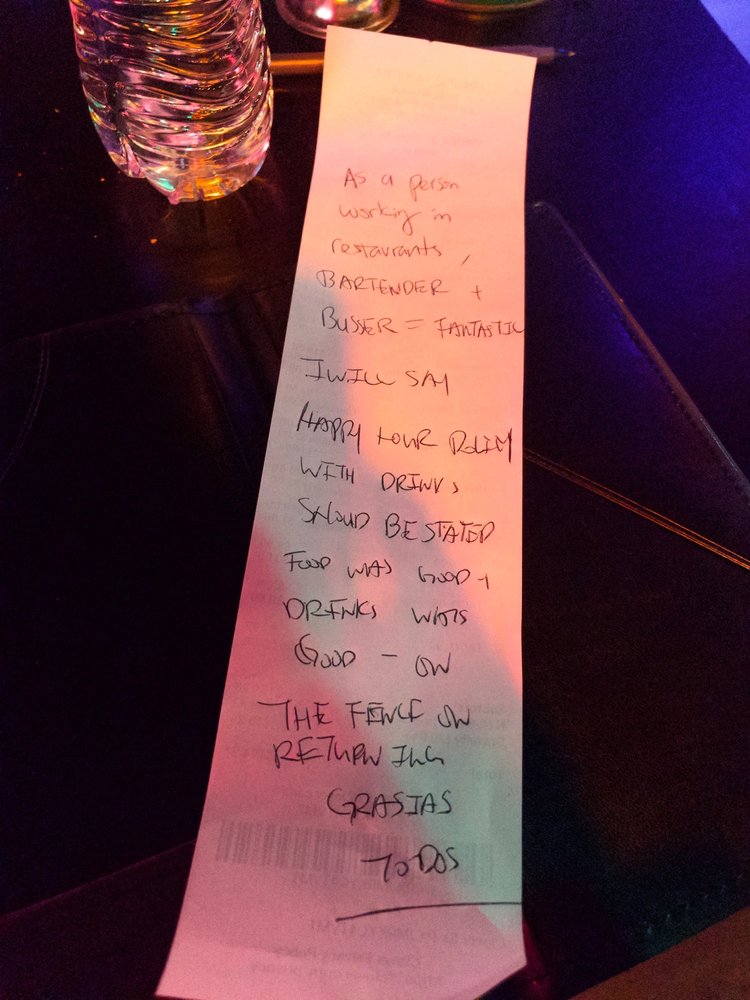 As a person
working in
restaurants,
BARTENDER +
BUSSER = FANTASTIC
I WILL SAY
HAPPY HOUR POLICY
WITH DRINKS
SHOUD BE STATED
FOOD WAS GOOD +
DRINKS WAS
GOOD - ON
THE FENCE ON
RETURNING
GRASIAS
TODOS